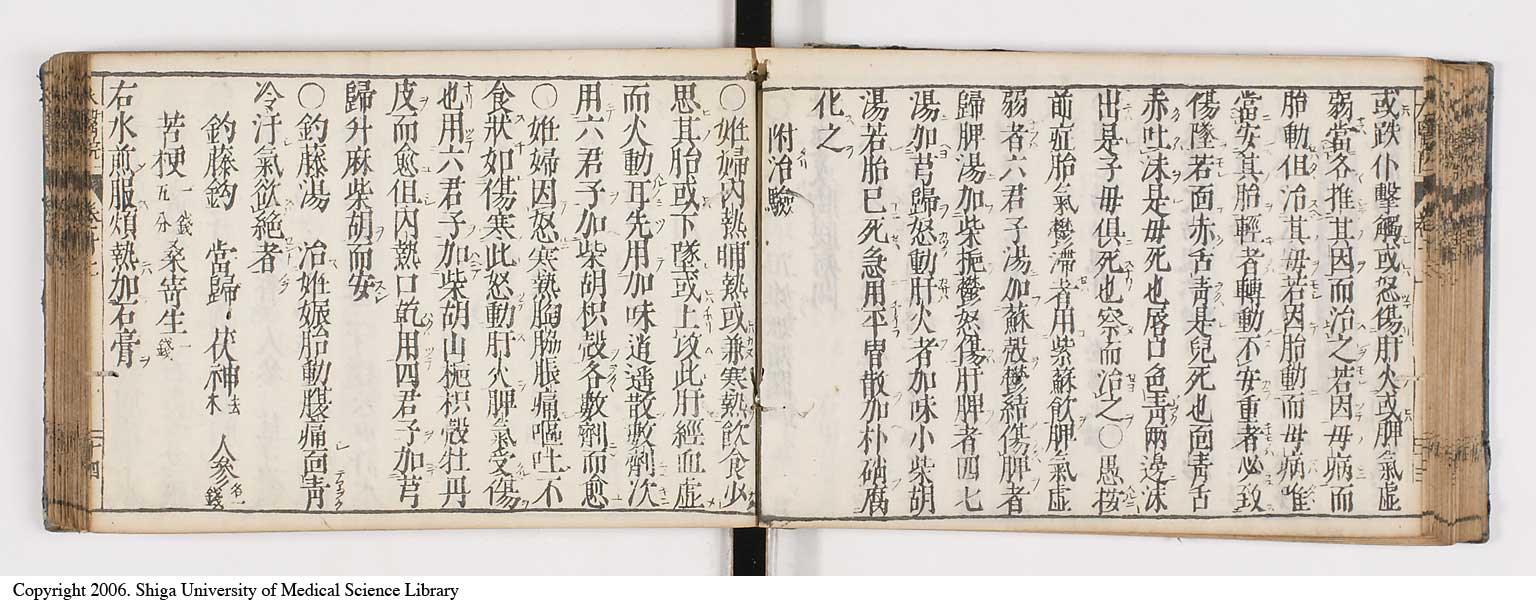 或跌仆擊觸或怒傷肝火或脾氣虛
弱當各推其因而治之若因母病而
胎動但治其母若因胎動而母病唯
當安其胎輕者轉動不安重者必致
傷墜若面赤舌青是兒死也面青舌
赤吐沫是母死也唇口色青兩邊沫
出是子母俱死也察而治之〇愚按
前症胎氣鬱滯者用紫蘇飲脾氣虛
弱者六君子湯加蘇殼鬱結傷脾者
歸脾湯加柴梔鬱怒傷肝脾者四七
湯加芎歸怒動肝火者加味小柴胡
湯若胎已死急用平胃散加朴硝腐
化之
附治驗
〇姙婦內熱晡熱或兼寒熱飲食少
思其胎或下墜或上攻此肝經血虛
而火動耳先用加味逍遙散數劑次
用六君子加柴胡枳殼各數劑而愈
〇姙婦因怒寒熱胸脇脹痛嘔吐不
食狀如傷寒此怒動肝火脾氣受傷
也用六君子加柴胡山梔枳殼牡丹
皮而愈但內熱口乾用四君子加芎
歸升麻柴胡而安
〇釣藤湯 治姙娠胎動腹痛面青
冷汗氣欲絕者
釣藤鉤 當歸 茯神去木 人參各一錢
苦梗一錢五分 桑寄生一錢
右水煎服煩熱加石膏